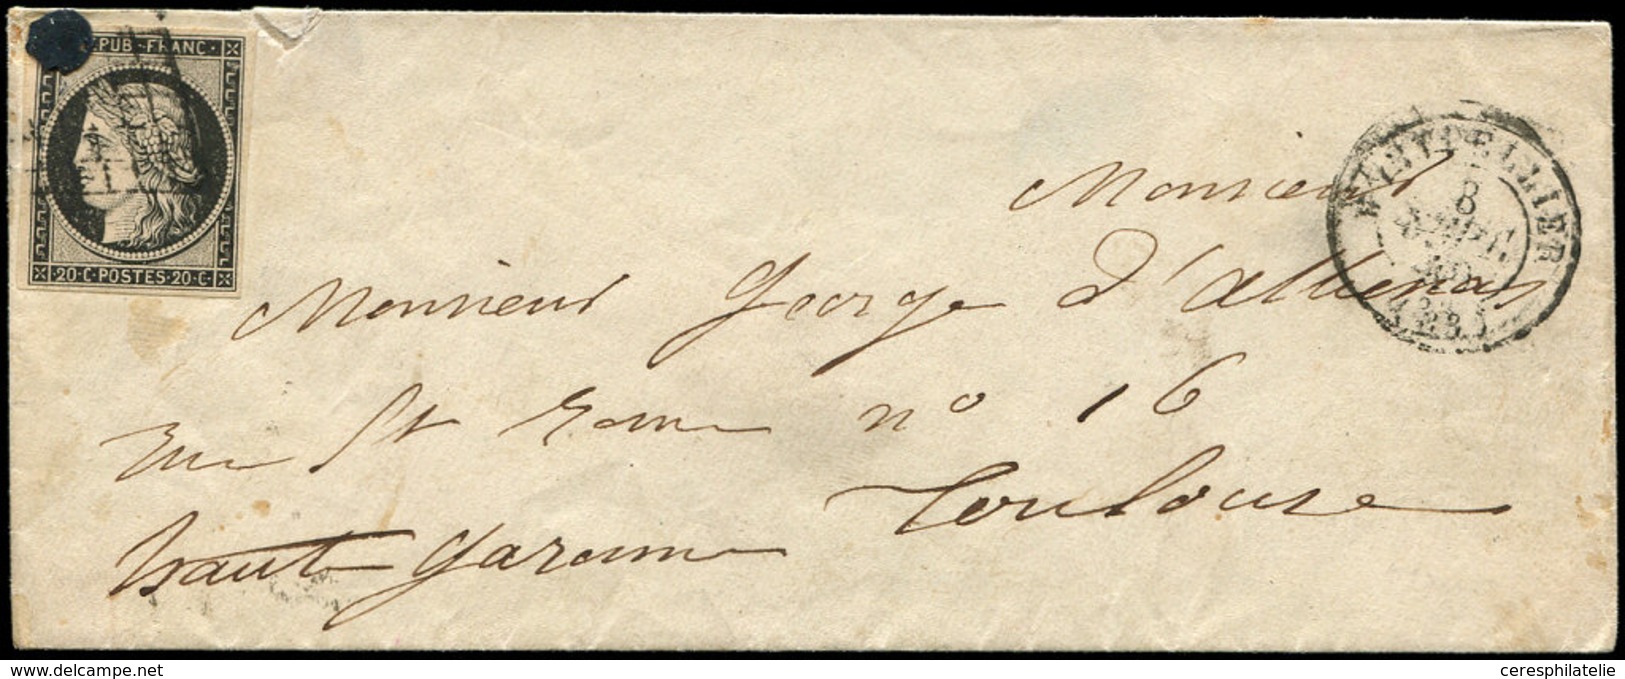 PUB·FRANC·
20·C·POSTES·20·C·
MONTPELLIER
8
Monsieur
Monsieur George d'Althenas
rue St Rome n° 16
Toulouse
haute Garonne
www.delcampe.net
ceresphilatelie